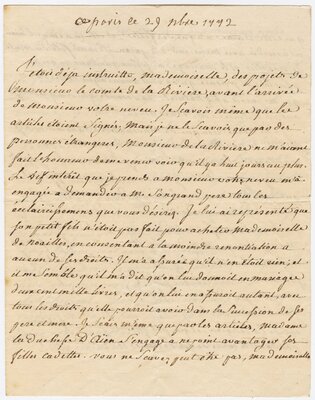 ce paris ce 29 9bre 1772
J'etois deja instruitte, mademoiselle, des projets de
monsieur le comte de la Riviere, avant l'arrivée
de monsieur votre neveu. Je scavois même que les
articles étoient signés, mais je ne le scavois que par des
personnes étrangeres, monsieur de la Riviere ne m'ayant
fait l'honneur de me venir voir qu'il y a huit jours au plus.
Le vif interêt que je prends a monsieur votre neveu m'a
engagée a demander a M. son grand pere tous les
eclaircissemens que vous desirez. Je lui ai representé que
son petit fils n'étoit pas fait pour acheter mademoiselle
de noailles, en consentant a la moindre renontiation a
aucun de ses droits. Il m'a assurée qu'il n'en étoit rien, et
il me semble qu'il m'a dit qu'on lui donnoit en mariage
deux cent mille livres, et qu'on lui en assuroit autant, avec
tous les droits qu'elle pourroit avoir dans la succession de ses
pere et mere. Je scais même que par les articles, madame
la duchesse d'Aïen s'engage a ne point avantager ses
filles cadettes. vous ne scavez peut etre pas, mademoiselle